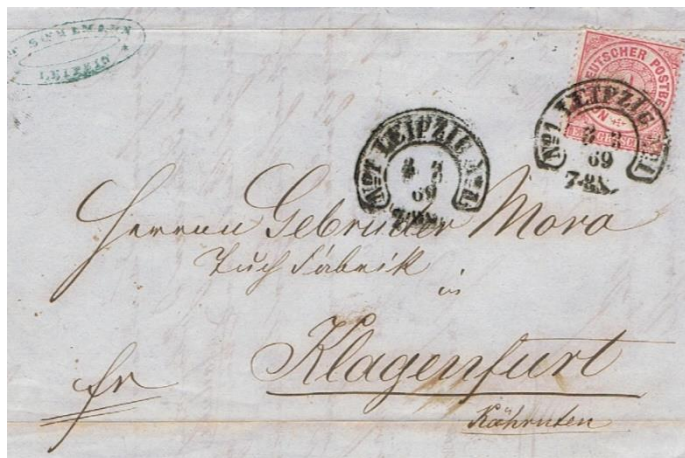 SIMMEMANN
LEIPZIG
DEUTSCHER POSTBE
No1 LEIPZIG No1
69
7-8N.
No1 LEIPZIG No1
69
Herren Gebrüder Moro
Tuch Fabrik
in
Klagenfurt
fr
Kährnten